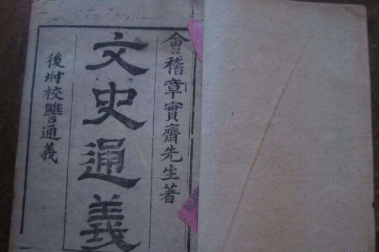 會稽章實齋先生著
文史通義
後坿校讐通義